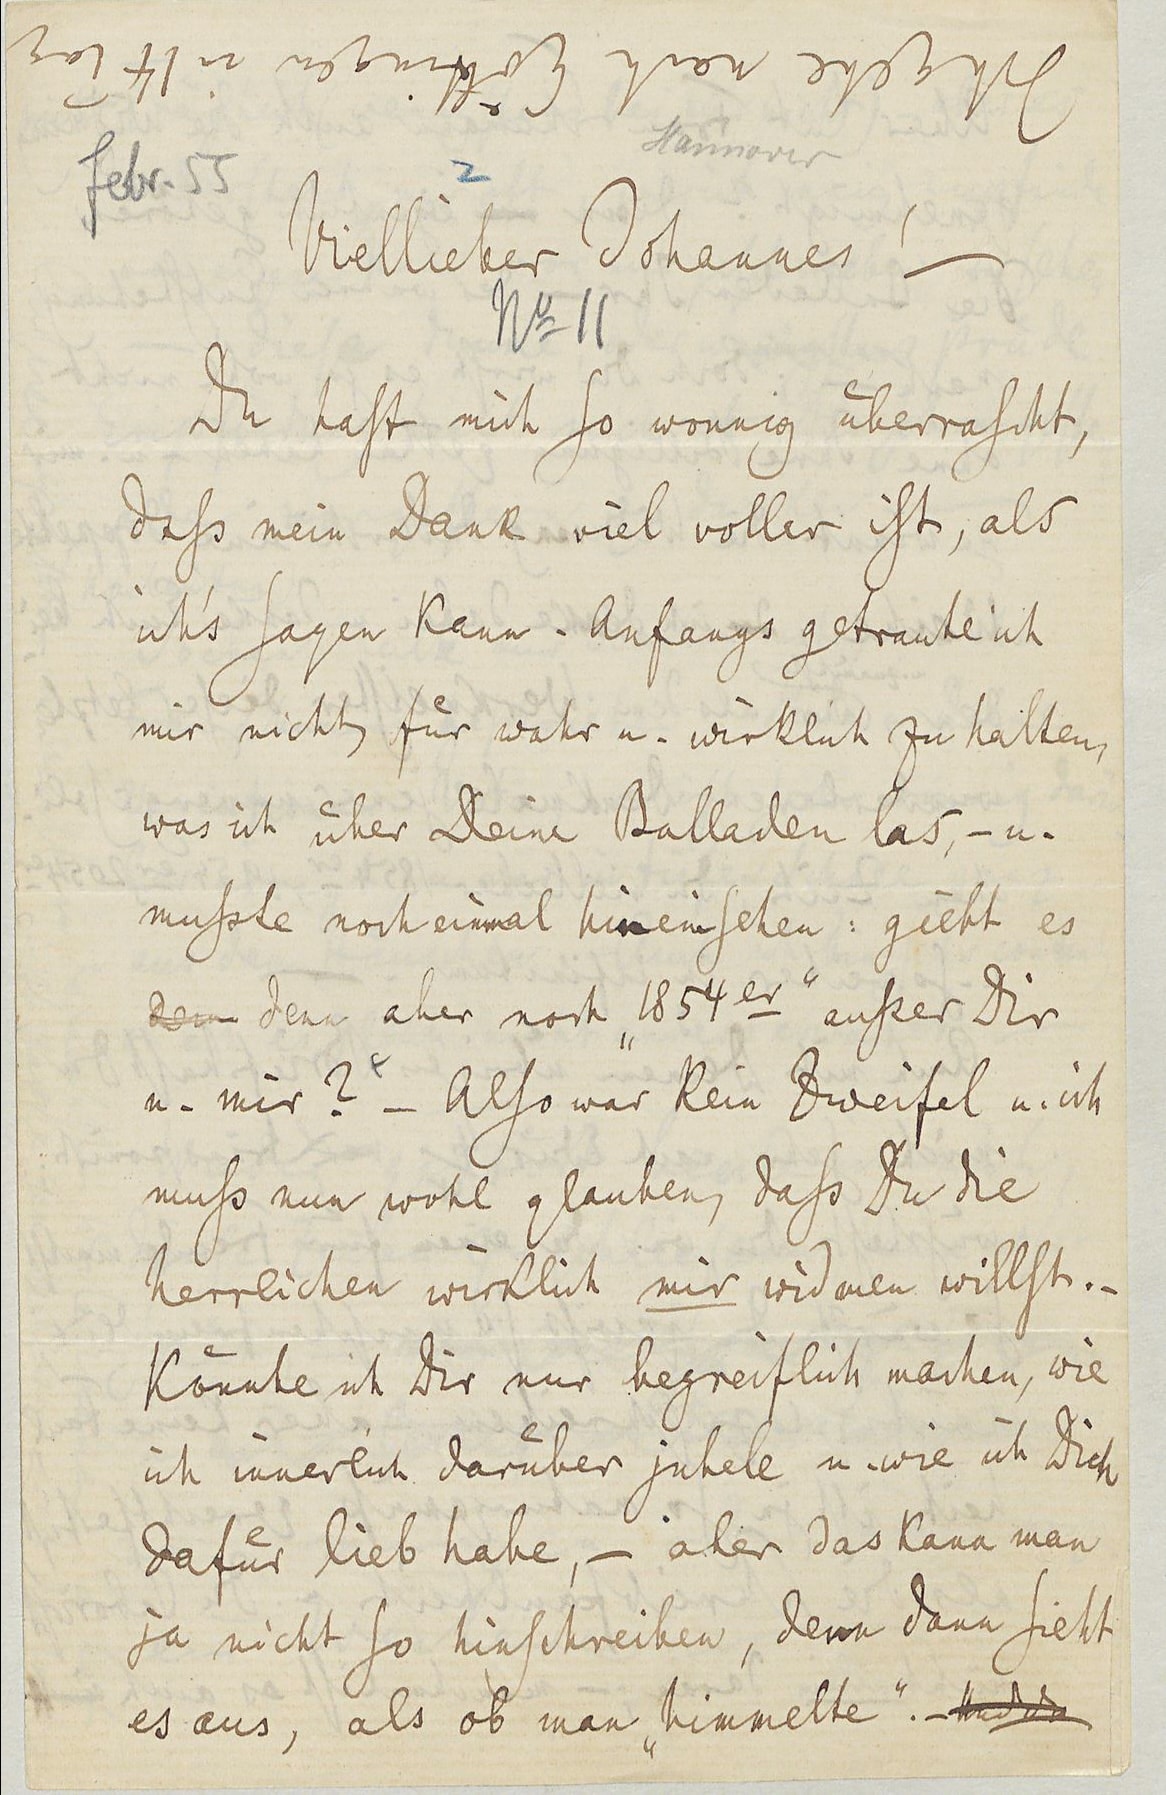 Ich gehe nach Göttingen in 14 Tag
Hannover
Febr. 55
2
Viellieber Johannes! —
No 11
Du hast mich so wonnig überrascht,
dass mein Dank viel voller ist, als
ich's sagen kann. Anfangs getraute ich
mir nicht, für wahr u. wirklich zu halten,
was ich über Deine Balladen las, – u.
musste noch einmal hineinsehen: giebt es
denn aber noch „1854er“ ausser Dir
u. mir? – Also war kein Zweifel u. ich
muss nun wohl glauben, dass Du die
herrlichen wirklich mir widmen willst. –
Könnte ich Dir nur begreiflich machen, wie
ich innerlich darüber jubele u. wie ich Dich
dafür lieb habe, – aber das kann man
ja nicht so hinschreiben, denn dann sieht
es aus, als ob man „himmelte“. –